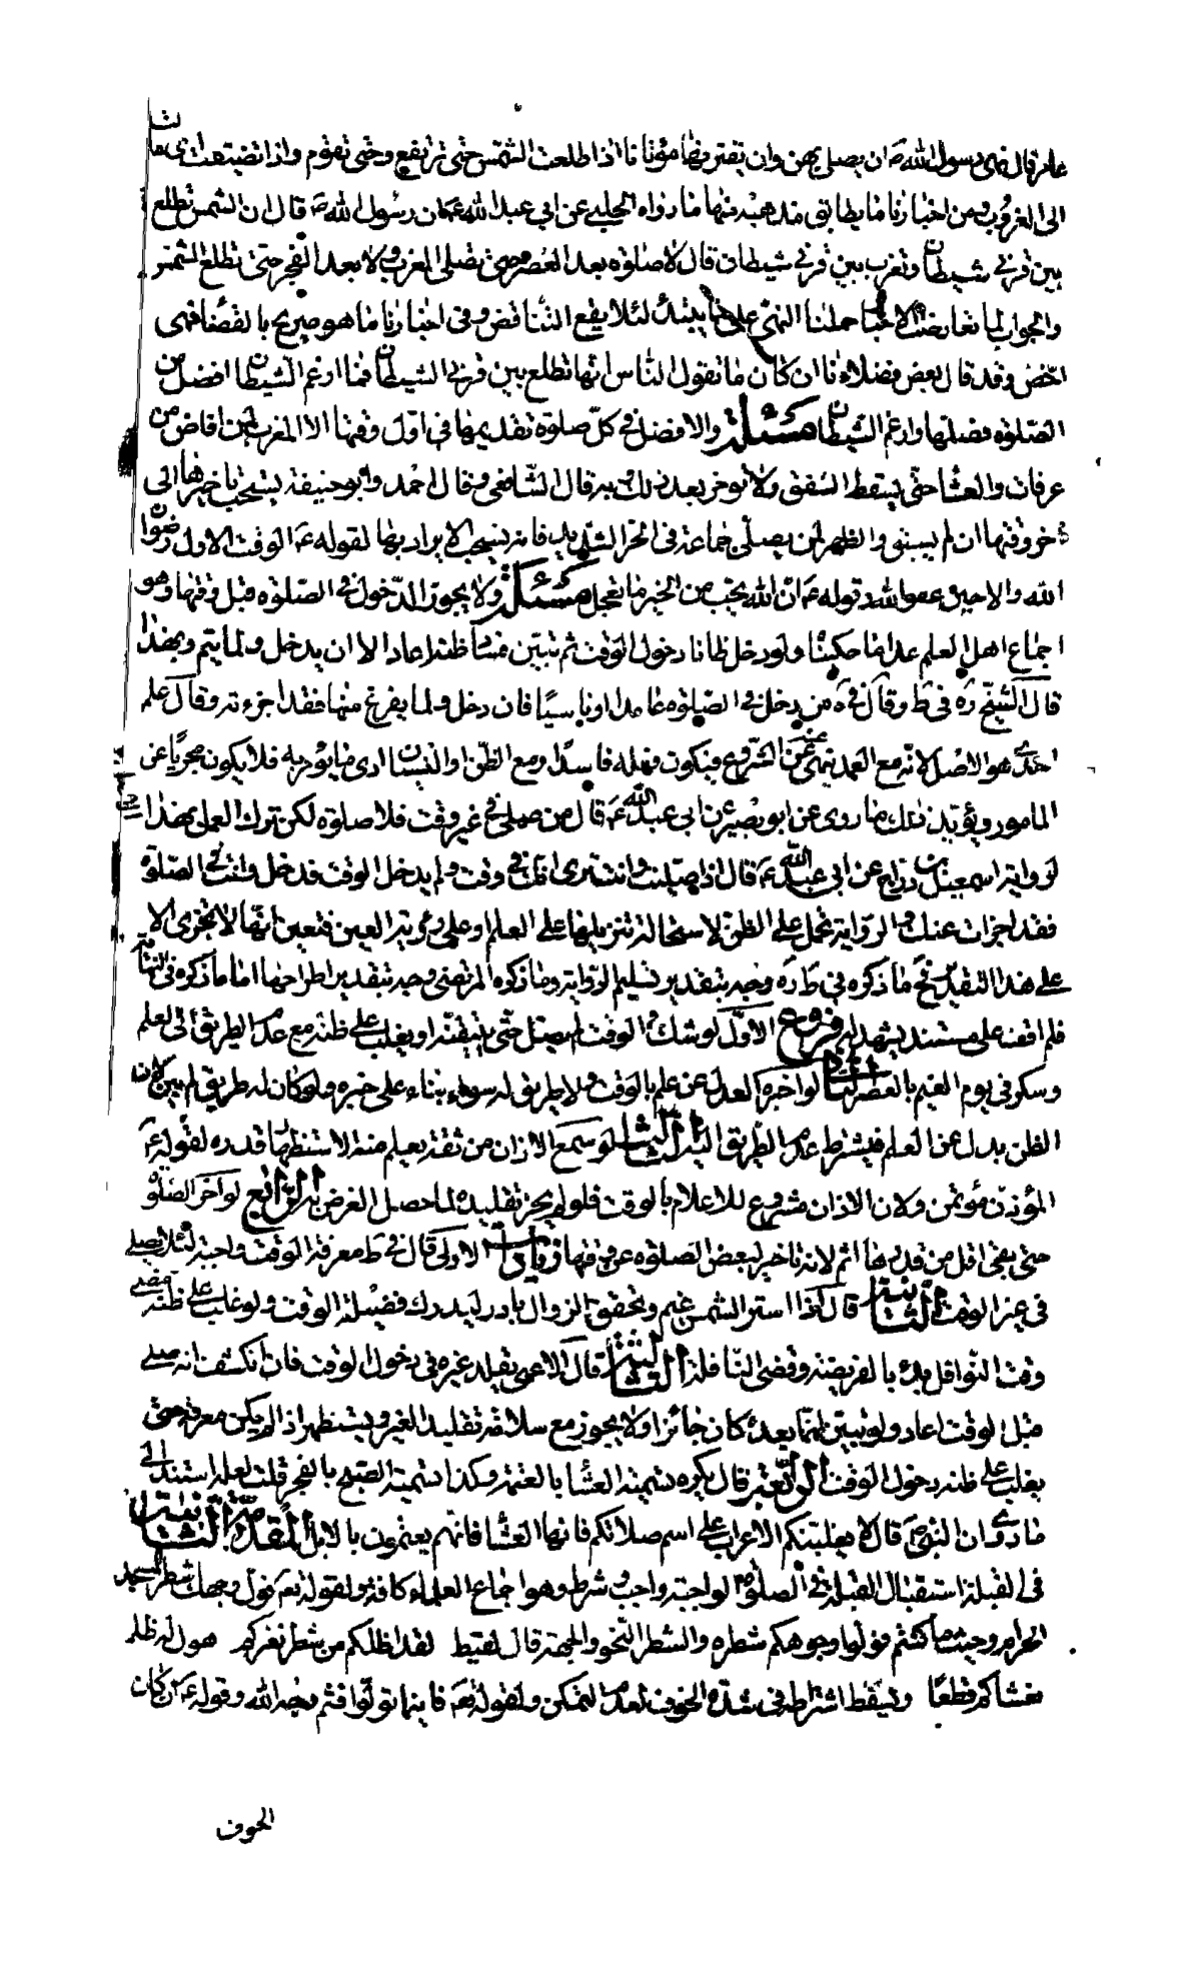 عامر قال نهى رسول الله ص ان يصلى بهن وان يقبر فيها موتانا اذا طلعت الشمس حتى ترتفع وحتى تقوم واذا تضيفت اى مالت
الى الغروب ومن اخبارنا ما يطابق مذهبه منها ما رواه الحلبي عن ابي عبد الله ع كان رسول الله ص قال ان الشمس تطلع
بين قرني شيطان وتغرب بين قرني شيطان قال لا صلوة بعد العصر حتى تصلى المغرب ولا بعد الفجر حتى تطلع الشمس
والجواب لما تعارضت الاخبار حملنا النهى على ما يبتدئ لئلا يقع التناقض وفى اخبارنا ما هو صريح بالقضا فهى
اخص وقد قال بعض فضلاءنا ان كان ما تقول الناس انها تطلع بين قرني الشيطان فما ارغم الشيطان افضل من
الصلوة فصلها وارغم الشيطان مسئلة والافضل فى كل صلوة تقديمها فى اول وقتها الا المغرب لمن افاض من
عرفات والعشا حتى يسقط الشفق ولا تؤخر بعد ذلك وبه قال الشافعى وقال احمد وابو حنيفة يستحب تاخيرها الى
اخر وقتها ان لم يشق والظهر لمن يصلى جماعة فى الحر الشديد فانه يستحب الابراد بها لقوله ع الوقت الاول رضوان
الله والاخير عفو الله وقوله ع ان الله يحب من الخير ما تعجل مسئلة ولا يجوز الدخول فى الصلوة قبل وقتها وهو
اجماع اهل العلم عدا ما حكيناه ولو دخل ظانا دخول الوقت ثم تبين فساد ظنه اعاد الا ان يدخل ولما يتم وبهذا
قال الشيخ ره فى ط وقال فى ه من دخل فى الصلوة عامدا او ناسيا فان دخل ولما يفرغ منها فقد اجزءته وقال علم
الهدى هو الاصل لانه مع العمد نهى عن الشروع فيكون فعله فاسدا ومع الظن او النسيان ادى ما يؤمر به فلا يكون مجزيا عن
المامور ويؤيد ذلك ما روى عن ابو بصير عن ابى عبد الله ع قال من صلى فى غير وقت فلا صلوة لكن ترك العمل بهذا
لرواية اسمعيل بن رباح عن ابى عبد الله ع قال اذا صليت وانت ترى انك فى وقت ولم يدخل الوقت فدخل وانت فى الصلوة
فقد اجزات عنك والرواية تحمل على الظن لاستحالة تنزيلها على العلم او على رؤية العين فتعين انها لا تجزى الا
على هذا التقدير نعم ما ذكره فى ط ره وجه بتقدير تسليم الرواية وما ذكره المرتضى وجه بتقدير اطراحها اما ما ذكره فى النهاية
فلم اقف على مستند يشهد له فروع الاول لو شك فى الوقت لم يصل حتى يتيقنه او يغلب على ظنه مع عدم الطريق الى العلم
لو اخبره العدل عن علم بالوقت ولا طريق له سواه بناء على خبره ولو كان له طريق لم يبن لان
الظن بدل عن العلم فيشترط عدم الطريق اليه الثالث لو سمع الاذان من ثقة يعلم منه الاستظهار قلده لقوله ع
المؤذن مؤتمن ولان الاذان مشروع للاعلام بالوقت فلو لم يجز تقليده لما حصل الغرض به الرابع لو اخر الصلوة
حتى بقى اقل من قدرها اثم لانه تاخير لبعض الصلوة عن وقتها الاولى قال فى ط معرفة الوقت واجبة لئلا يصلى
فى غير الوقت الثانية قال كذا استتر الشمس غيم وتحقق الزوال بادر ليدرك فضيلة الوقت ولو غلب على ظنه مضى
وقت النوافل بدء بالفريضة وقضى النافلة الثالثة قال الاعمى يقلد غيره فى دخول الوقت فان انكشف انه صلى
قبل الوقت اعاد ولو تبين انها بعده كان جائزا ولا يجوز مع سلامته تقليد الغير ويستظهر اذا لم يكن معرفة حتى
يغلب على ظنه دخول الوقت الرابعة قال يكره تسمية العشا بالعتمة وكذا تسمية الصبح بالفجر قلت لعله استند الى
ما روى ان النبى ص قال لا يغلبنكم الاعراب على اسم صلاتكم فانها العشا فانهم يعتمون بالابل المقدمة الثالثة
فى القبلة استقبال القبلة فى الصلوة الواجبة واجب وشرط وهو اجماع العلماء كافة ولقوله تع فول وجهك شطر المسجد
الحرام وحيث ما كنتم فولوا وجوهكم شطره والشطر النحو والجهة قال لقيط لقد اظلكم من شطر ثغركم هول له ظلم
تغشاكم قطعا ويسقط اشتراطه فى شدة الخوف لعدم التمكن ولقوله تع فاينما تولوا فثم وجه الله وقوله ع ان كان
الخوف